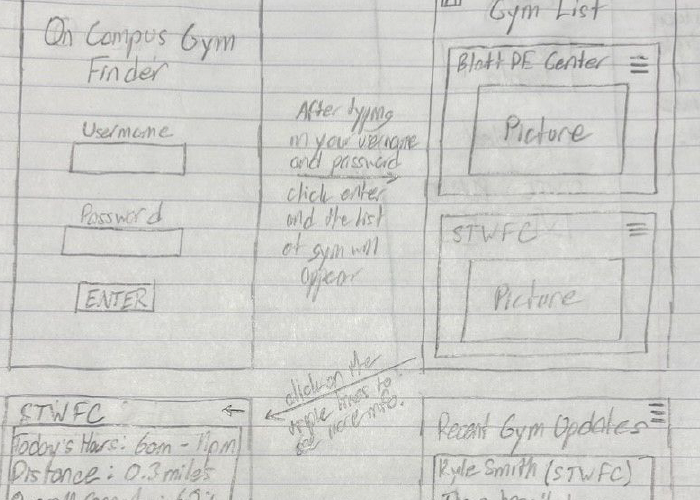 On Campus Gym
Finder
Username
Password
ENTER
After typing
in your username
and password
click enter
and the list
of gym will
appear
Gym List
Blatt PE Center
Picture
STWFC
Picture
click on the
triple lines to
see more info.
STWFC
Today's Hours: 6am - 11pm
Distance: 0.3 miles
Recent Gym Updates
Kyle Smith (STWFC)